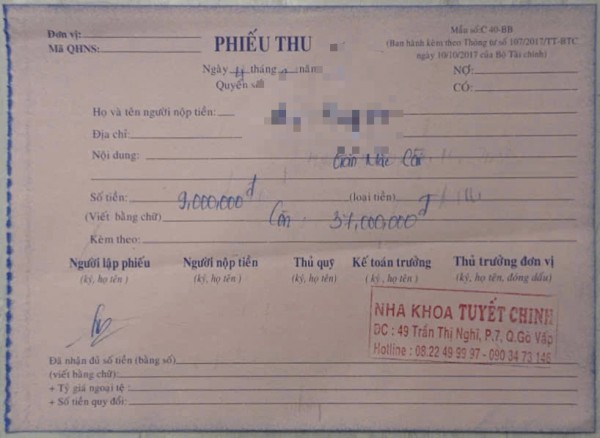 Đơn vị:
Mã QHNS:
PHIẾU THU
Mẫu số:C 40-BB
(Ban hành kèm theo Thông tư số 107/2017/TT-BTC
ngày 10/10/2017 của Bộ Tài chính)
Ngày tháng năm
Quyển số
NỢ:
CÓ:
Họ và tên người nộp tiền:
Địa chỉ:
Nội dung:
Số tiền: 9,000,000đ (loại tiền)
(Viết bằng chữ) Còn 37,000,000đ
Kèm theo:
Người lập phiếu Người nộp tiền Thủ quỹ Kế toán trưởng Thủ trưởng đơn vị
(ký, họ tên ) (ký, họ tên ) (ký, họ tên ) (ký , họ tên ) (ký, họ tên, đóng dấu)
NHA KHOA TUYẾT CHINH
ĐC : 49 Trần Thị Nghỉ, P.7, Q.Gò Vấp
Hotline : 08.22 49 99 97 - 090 34 73 146
Đã nhận đủ số tiền (bằng số)
(viết bằng chữ):
+ Tỷ giá ngoại tệ :
+ Số tiền quy đổi: